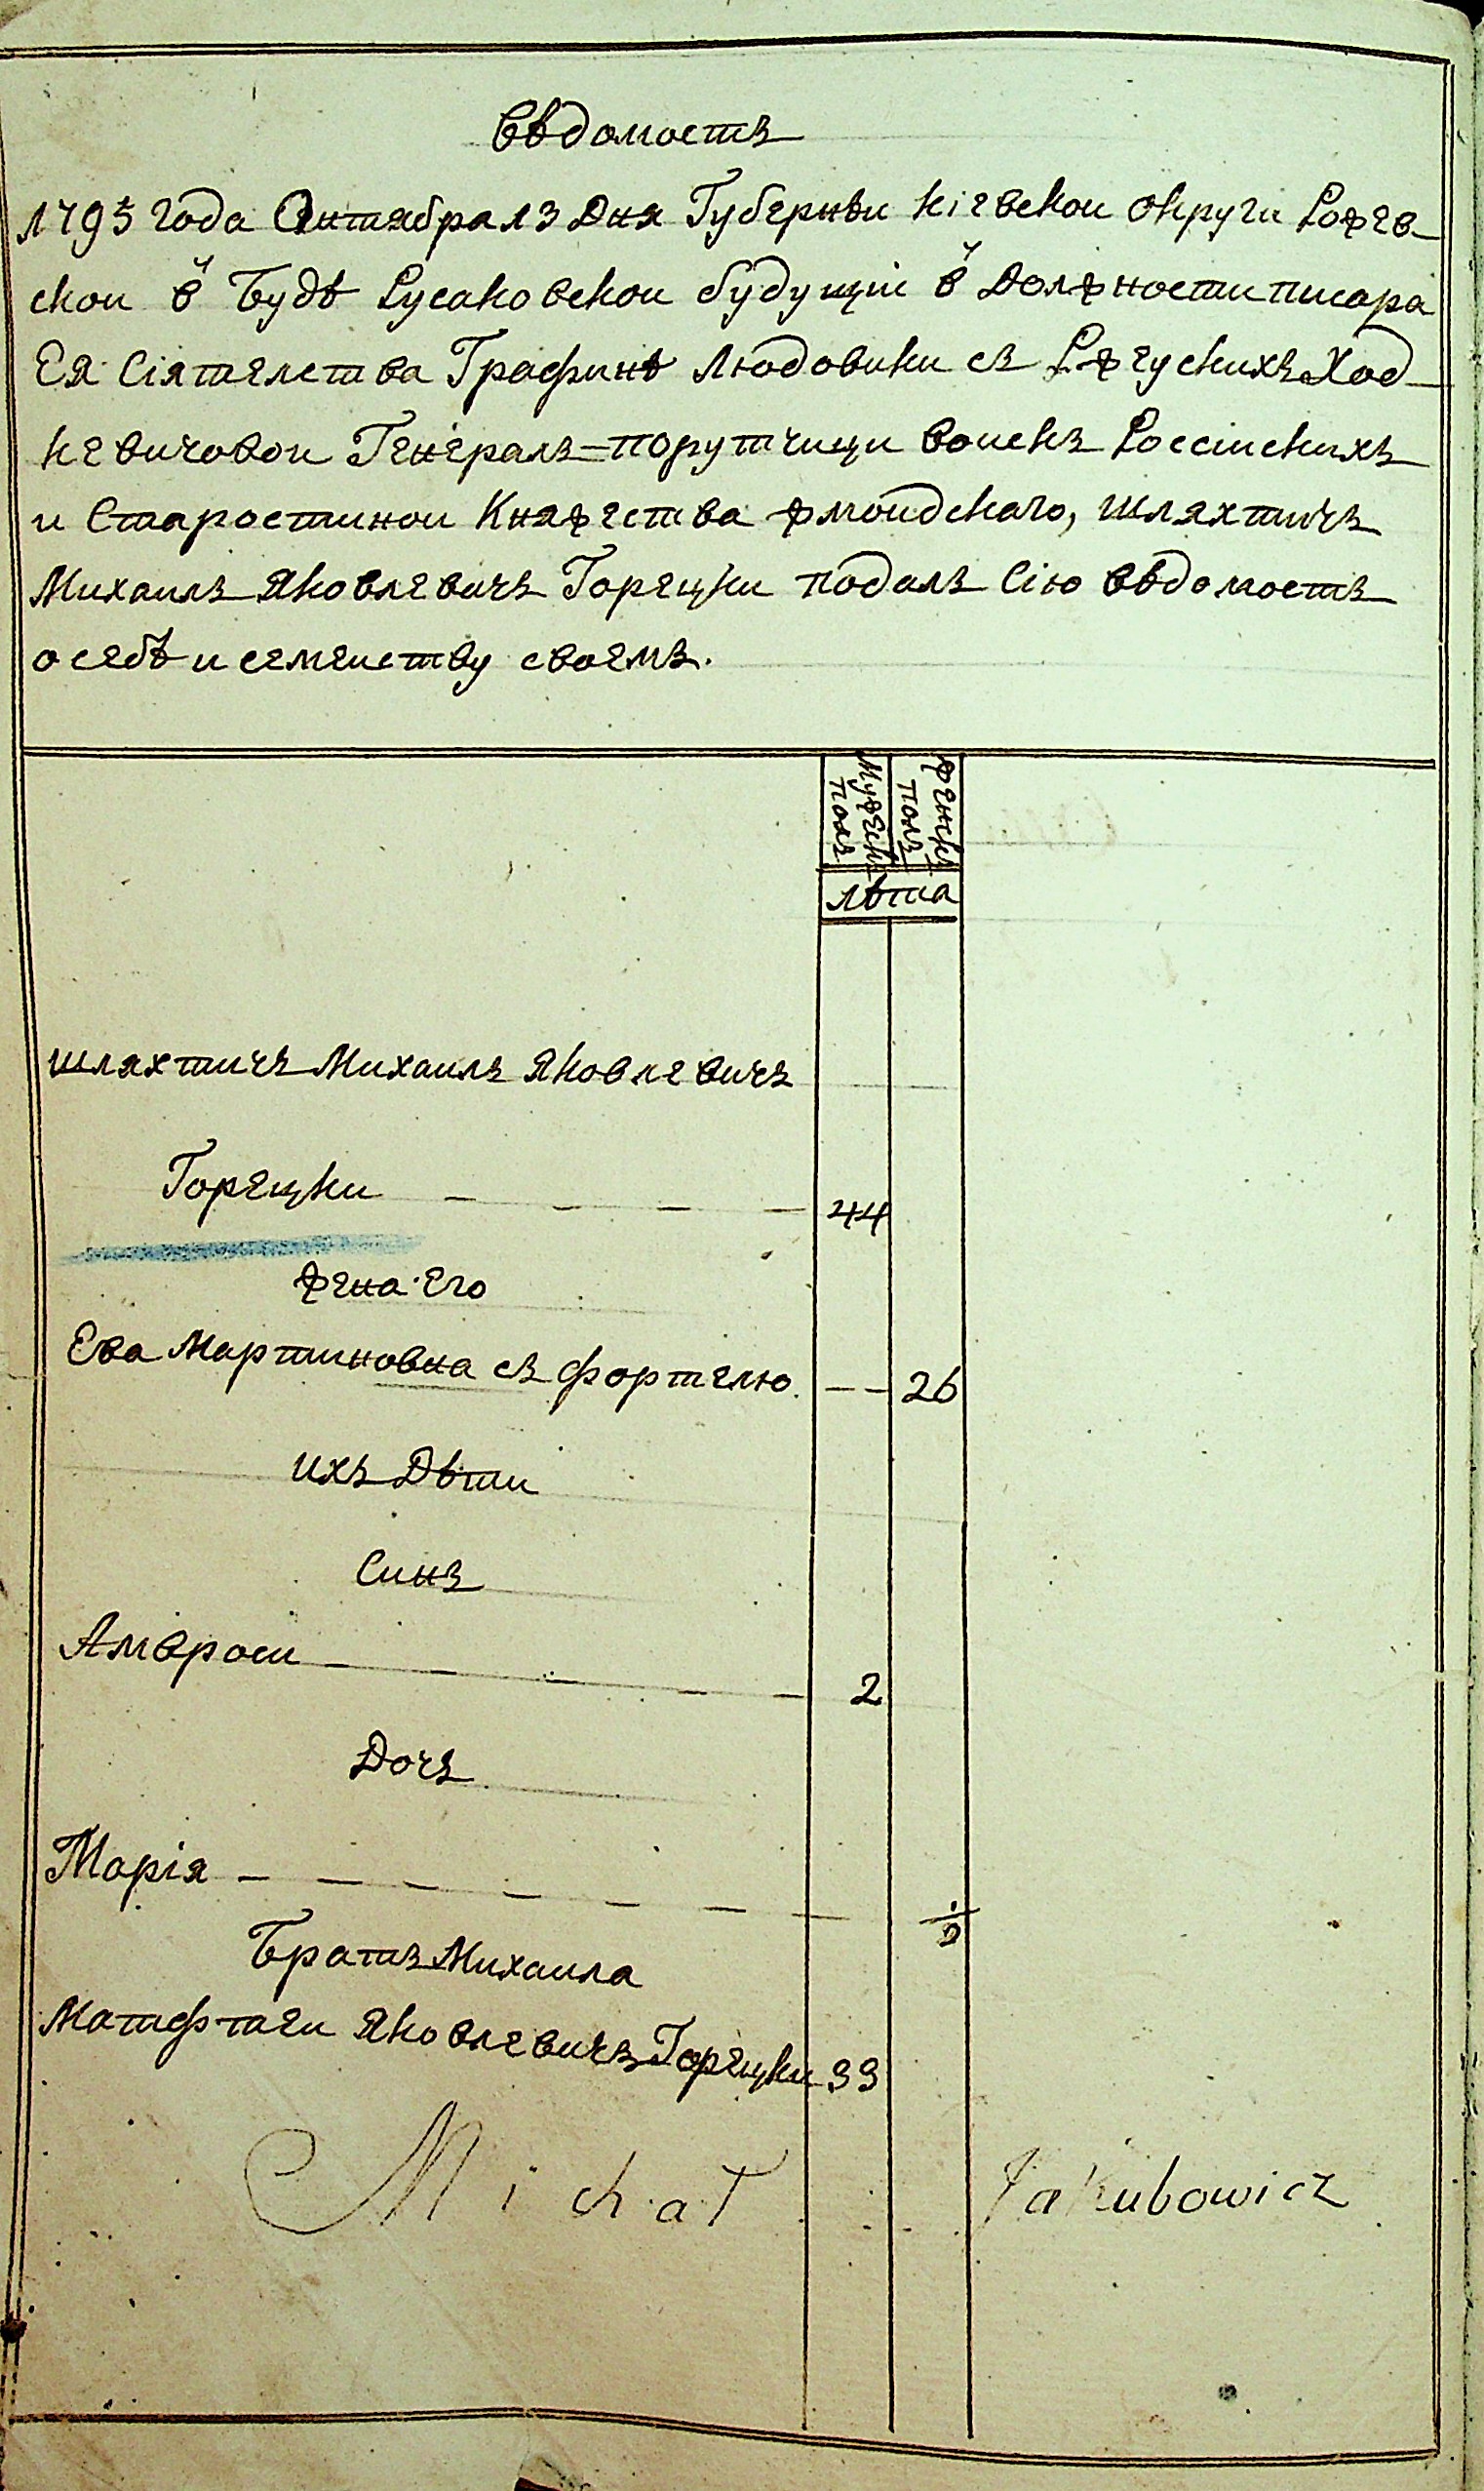 Вѣдомостъ
1795 года Октября 13 Дня Губернѣи Кіевской Округи Рожев-
ской в Будѣ Русаковской будущіи в Должности писара
Ея Сіятелства Графинѣ Людовики съ Ржеускихъ Ход-
кевичовой Генералъ=порутчици воискъ Россіискихъ
и Старостиной Княжества жмоидскаго, шляхтичъ
Михаилъ Яковлевичъ Горецки подалъ Сію вѣдомостъ
о себѣ и семеиству своемъ.
Мужеск полъ
женск полъ
лѣта
шляхтичъ Михаилъ Яковлевичъ
Горецки 44
жена Его
Ева Мартиновна съ фортелю 26
ихъ Дѣти
Синъ
Амвроси 2
Дочъ
Марія
Братъ Михаила
Матфтаеи Яковлевичъ Горецки 33
Michał Jakubowicz